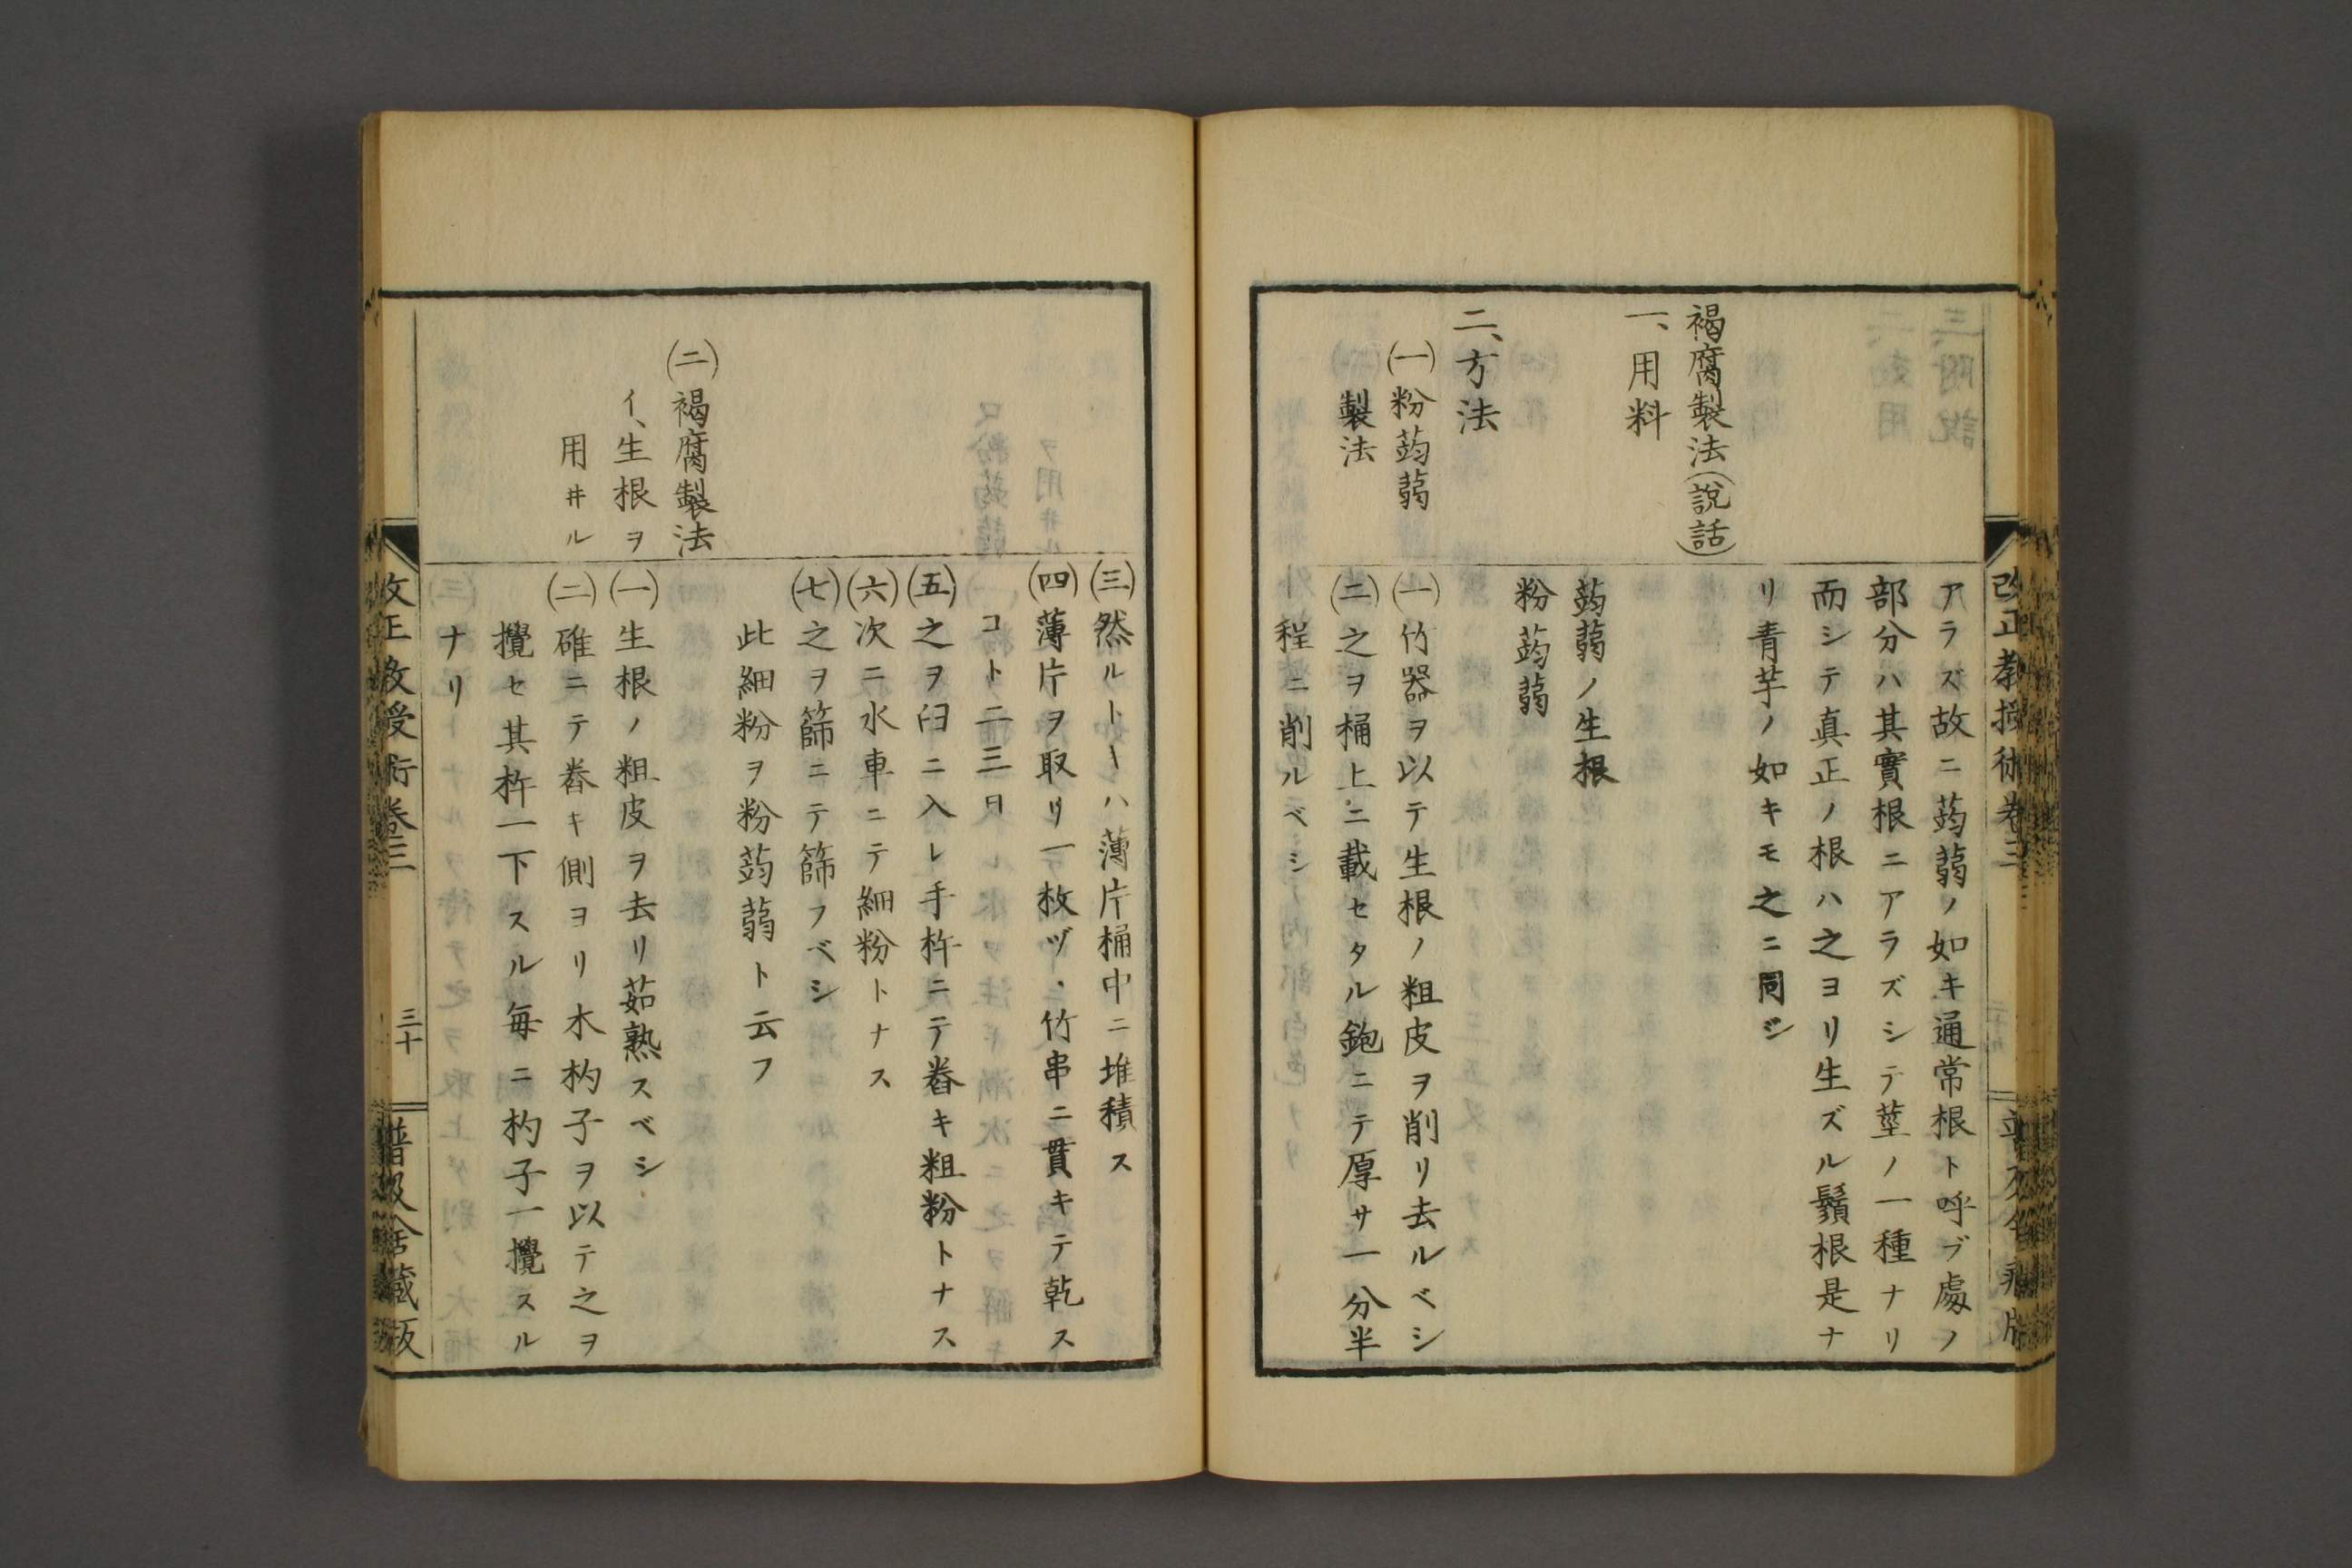 改正教授術卷三
アラズ故ニ蒟蒻ノ如キ通常根ト呼ブ處ノ
部分ハ其實根ニアラズシテ莖ノ一種ナリ
而シテ真正ノ根ハ之ヨリ生ズル鬚根是ナ
リ青芋ノ如キモ之ニ同ジ
褐腐製法(說話)
一、用料
蒟蒻ノ生根
粉蒟蒻
二、方法
(一)粉蒟蒻
製法
(一)竹器ヲ以テ生根ノ粗皮ヲ削リ去ルベシ
(二)之ヲ桶上ニ載セタル鉋ニテ厚サ一分半
程ニ削ルベシ
(三)然ルトーハ薄片桶中ニ堆積ス
(四)薄片ヲ取リ一枚ヅヽ竹串ニ貫キテ乾ス
コト二三日
(五)之ヲ臼ニ入レ手杵ニテ舂キ粗粉トナス
(六)次ニ水車ニテ細粉トナス
(七)之ヲ篩ニテ篩フベシ
此細粉ヲ粉蒟蒻ト云フ
(二)褐腐製法
イ、生根ヲ
用井ル
(一)生根ノ粗皮ヲ去リ茹熟スベシ
(二)碓ニテ舂キ側ヨリ木杓子ヲ以テ之ヲ
攪セ其杵一下スル毎ニ杓子一攪スル
ナリ
改正教授術卷三
三十
普及舍藏版